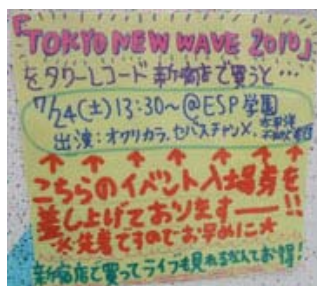 「TOKYO NEW WAVE 2010」
をタワーレコード新宿店で買うと…
7/24(土)13:30~@ESP学園
出演:オワリカラ、セバスチャンX、
こちらのイベント入場券を
差し上げております——!!
*先着ですのでお早めに*
新宿店で買ってライブも見れるなんてお得!